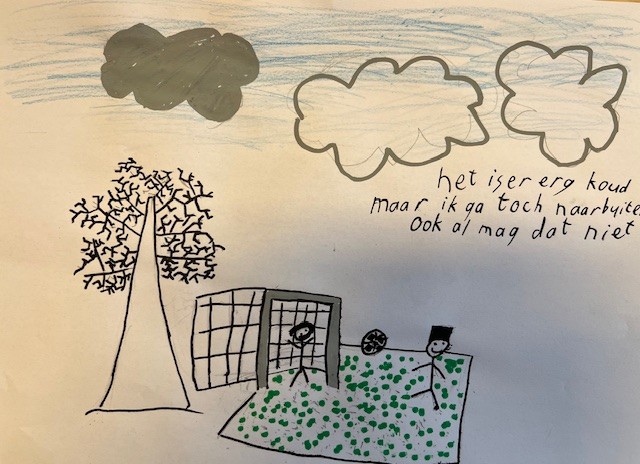 het is er erg koud
maar ik ga toch naar buite
ook al mag dat niet